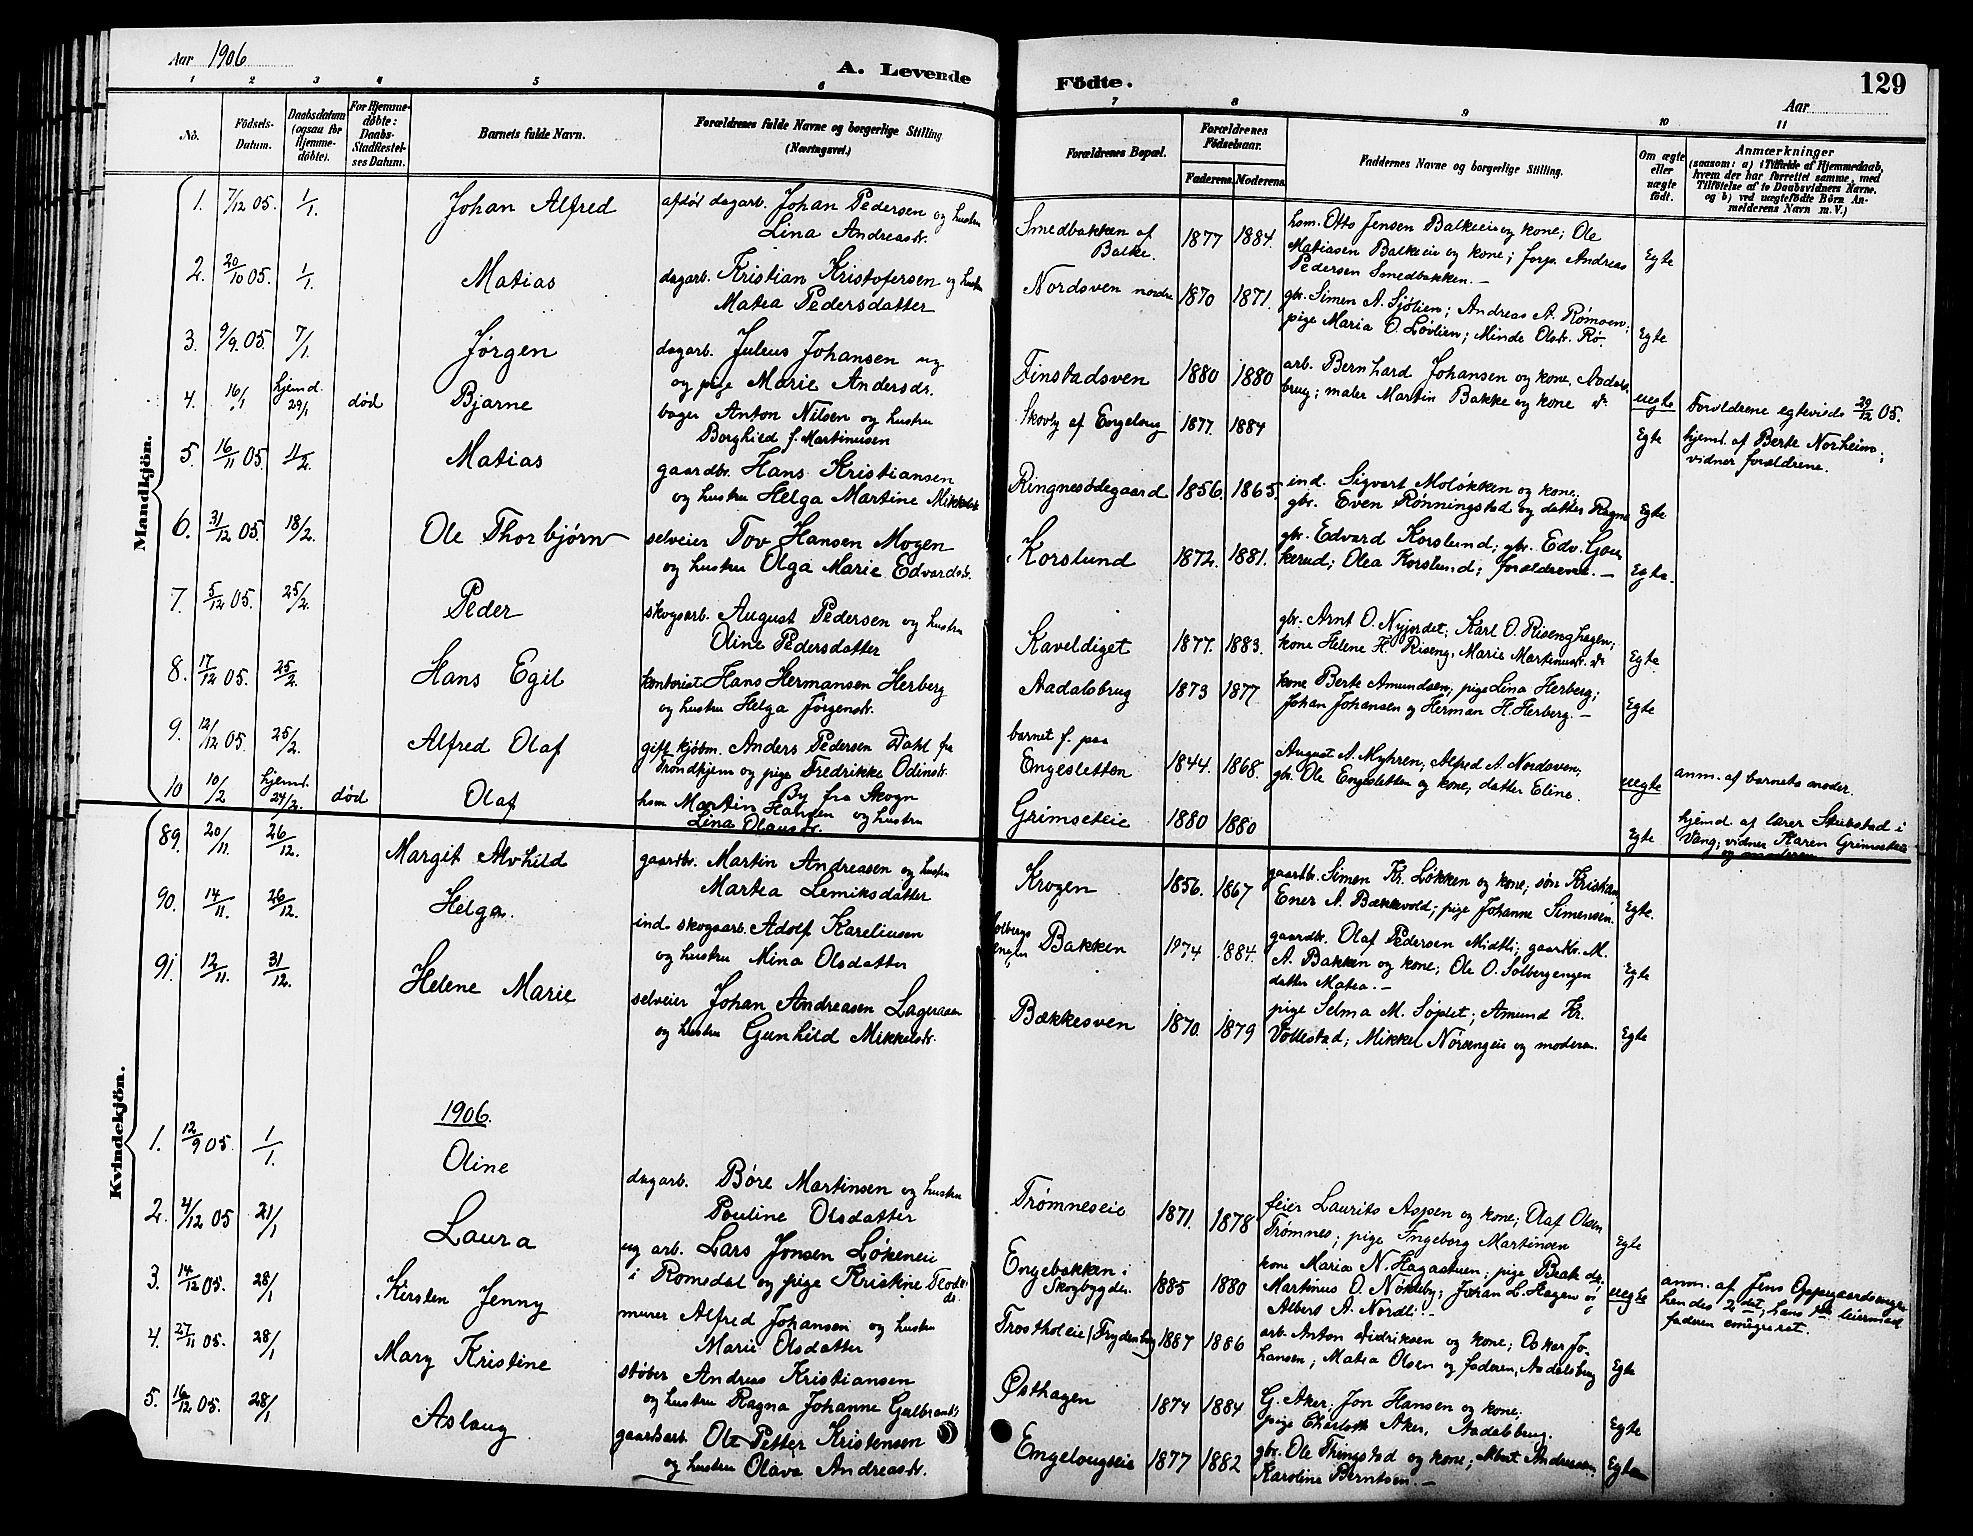 Aar 1906
A. Levende Födte.
129
Aar
1 2 3 4 5 6 7 8 9 10 11
No.
Födsels-Datum.
Daabsdatum (ogsaa for Hjemmedöbte).
For Hjemmedöbte: Daabs-Stadfestelses Datum.
Barnets fulde Navn.
Forældrenes fulde Navne og borgerlige Stilling (Næringsvei.)
Forældrenes Bopæl.
Forældrenes Födselsaar.
Faderens. Moderens.
Faddernes Navne og borgerlige Stilling.
Om ægte eller uægte födt.
Anmærkninger
(saasom: a) i Tilfælde af Hjemmedaab, hvem der har forrettet samme, med Tilföielse af to Daabsvidners Navne. og b) ved uægtefödte Börn Anmelderens Navn m. V.)
Mandkjön.
1. 7/12 05. 1/1. Johan Alfred
afdøl dagarb. Johan Pedersen og hustru
Lina Andreasdr.
Smedbakken af Balke. 1877 1884.
hsm. Otto Jensen Balkeeie og kone; Ole
Matiasen Balkeeie og kone; forp. Andreas
Pedersen Smedbakken. —
Egte
2. 20/10 05. 1/1. Matias
dagarb. Kristian Kristofersen og hustru
Matea Pedersdatter
Nordsven nordre 1870 1871.
gbr. Simen A. Sjølien; Andreas A. Rømoen;
pige Maria O. Løvlien; Minde Olsdr. Rø.
Egte
3. 9/9. 05. 7/1. Jørgen
dagarb. Julius Johansen ug
og pige Marie Andersdr.
Finstadsven 1880 1880
arb. Bernhard Johansen og kone, Aadals-
brug; maler Martin Bakke og kone do
uegte
Forældrene egteviedes 29/12 05.
4. 16/1 hjemd. 29/1 død Bjarne
bager Anton Nilsen og hustru
Borghild f. Martinusen
Skovly af Engeloug 1877. 1884
Egte
hjemd. af Berte Norheim;
vidner forældrene.
5. 16/11 05. 11/2. Matias
gaardbr. Hans Kristiansen
og hustru Helga Martine Mikkelsdr.
Ringnesødegaard 1856. 1865.
ind. Sigvart Moløkken og kone;
gbr. Even Rønningstad og datter Ragna
Egte
6. 31/12 05. 18/2. Ole Thorbjørn
selveier Tov Hansen Mogen
og hustru Olga Marie Edvardsdr.
Korslund 1872. 1881.
gbr. Edvard Korslund; gbr. Edv. Gau
kerud; Olea Korslund; forældrene. —
Egte.
7. 5/12 05. 25/2. Peder
skogsarb. August Pedersen og hustru
Oline Pedersdatter
Kaveldiget 1877. 1883.
gbr. Arnt O. Nyjordet; Karl O. Risenghagen;
kone Helene H. Riseng, Marie Martinusdr. do
Egte
8. 17/12 05. 25/2. Hans Egil
kontorist Hans Hermansen Herberg
og hustru Helga Jørgensdr.
Aadalsbrug 1873 1877
kone Berte Amundsen; pige Lina Herberg;
Johan Johansen og Herman H. Herberg. —
Egte
9. 12/12 05. 25/2. Alfred Olaf
gift kjøbm. Anders Pedersen Dahl fra
Trondhjem og pige Fredrikke Odinsdr.
By fra Skogn
barnet f. paa
Engesletten 1844. 1868.
August A. Myhren; Alfred A. Nordsven;
gbr. Ole Engesletten og kone, datter Eline.
uegte
anm. af barnets moder.
10 10/2 hjemd. 24/2. død Olaf
hsm. Martin Hansen og hustru
Lina Olausdr.
Grimseteie 1880 1880
Egte
hjemd. af lærer Skibstad i
Vang; vidner Karen Grimseteie
og moderen
Kvindekjön.
89. 20/11. 26/12. Margit Alvhild
gaardbr. Martin Andreasen og hustru
Martea Lemiksdatter
Krogen 1856. 1867
gaardbr. Simen Kr. Løkken og kone; søn Kristian;
Ener A. Bækkevold; pige Johanne Simensen.
Egte.
90. 14/11. 26/12. Helga.
ind. skogsarb. Adolf Kareliusen
og hustru Mina Olsdatter
Solbergs engen Bakken 1874 1884.
gaardbr. Olaf Pedersen Midtli; gaardbr. M.
A. Bakken og kone; Ole O. Solbergengen
datter Matea. —
Egte
91. 12/11. 31/12. Helene Marie
selveier Johan Andreasen Lageraaen
og hustru Gunhild Mikkelsdr.
Bækkesven 1870. 1879
pige Selma M. Søplet; Amund Kr.
Vollestad; Mikkel Norengeie og moderen.
Egte
1906.
1. 12/9 05. 1/1. Oline
dagarb. Børe Martinsen og hustru
Pouline Olsdatter
Trømneseie 1871. 1878
feier Laurits Aspen og kone; Olaf Olsen
Trømnes; pige Ingeborg Martinsen
Egte
2. 4/12 05 21/1 Laura
ug arb. Lars Jonsen Løkeneie
i Romedal og pige Kristine
Engebakken i Skogbygden 1885 1880
kone Maria N. Hagastuen; pige Beate do;
Martinus O. Nøkleby; Johan L. Hagen og
Albert A. Nordli. —
uegte
anm. af Jens Oppegaardsengen
hendes 2det, hans 1ste leiermaal
faderen emigreret.
3. 14/12 05. 28/1 Kirsten Jenny
murer Alfred Johansen og hustru
Marie Olsdatter
Trostholeie (Frydenberg) 1887 1886
arb. Anton Didriksen og kone; Oskar Jo-
hansen; Matea Olsen og faderen, Aadalsbrug
Egte
4. 27/11 05. 28/1 Mary Kristine
støber Andreas Kristiansen
og hustru Ragna Johanne Gulbrandsdr.
Østhagen 1874 1884
G. Aker; Jon Hansen og kone;
pige Charlotte Aker, Aadalsbrug.
Egte
5. 16/12 05. 28/1 Aslaug
gaardsarb. Ole Petter Kristensen
og hustru Olava Andreasdr.
Engelougseie 1877 1882
gbr. Ole Thingstad og kone; Albert Andreasen;
Karoline Berntsen. —
Egte